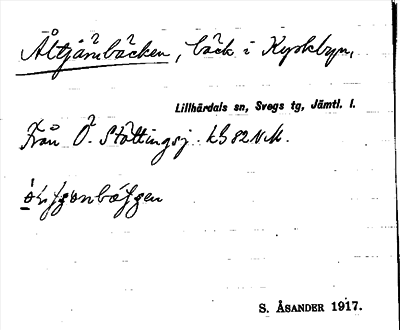 Åltjärnbäcken, bäck i Kyrkbyn,
Lillhärdals sn, Svegs tg, Jämtl. l.
Från Ö. Stöttingsj. kB 82 N.M.
S. ÅSANDER 1917.